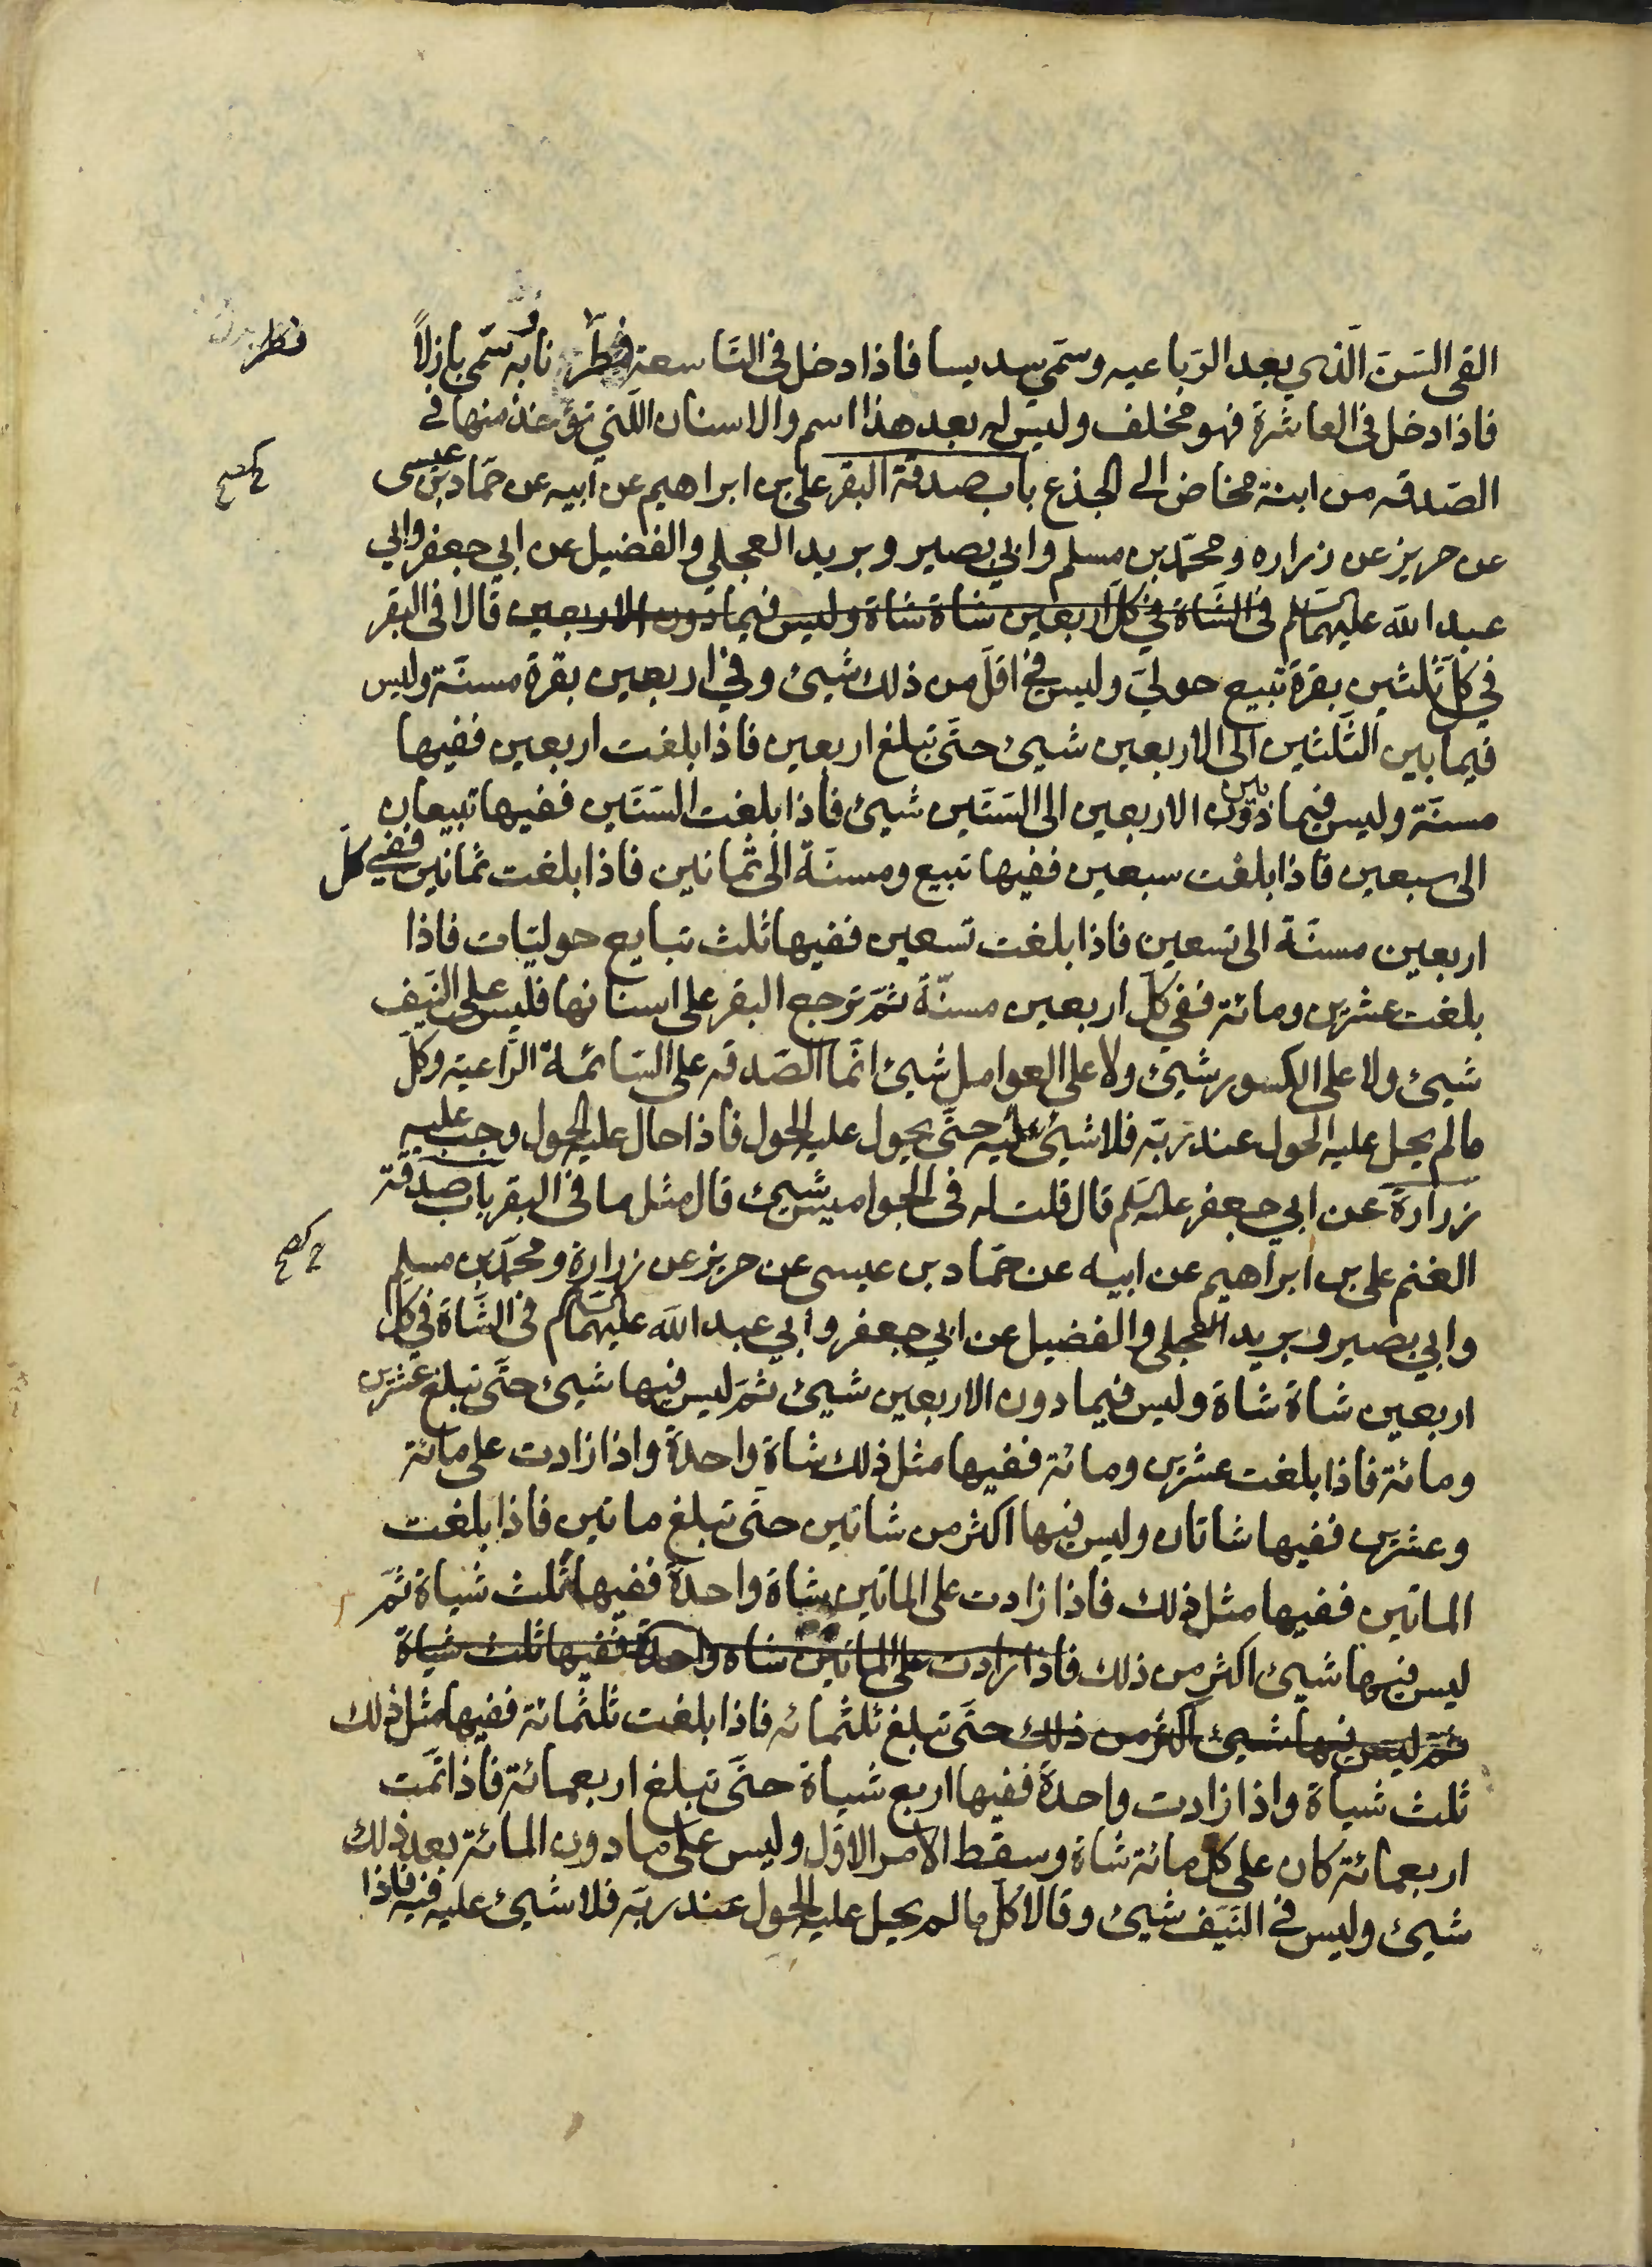 القى السّنّ الّذي بعد الرّباعيه وسمّي سديسا فاذا دخل في التّاسعة فطر نابه وسمّي بازلاً
فطر
فاذا دخل في العاشرة فهو مخلف وليس له بعد هذا اسم والاسنان اللّتي تؤخذ منها في
الصّدقه من ابنة مخاض الى الجذع باب صدقة البقر علي بن ابراهيم عن ابيه عن حمّاد بن عيسى
عن حريز عن زراره ومحمّد بن مسلم وابي بصير وبريد العجلي والفضيل عن ابي جعفر وابي
عبد اللّه عليهما السلام في الشّاة في كلّ اربعين شاة شاة وليس فيما دون الاربعين قالا في البقر
في كلّ ثلثين بقرة تبيع حوليّ وليس في اقلّ من ذلك شيئ وفي اربعين بقرة مسنّة وليس
فيما بين الثّلثين الى الاربعين شيئ حتّى تبلغ اربعين فاذا بلغت اربعين ففيها
مسنّة وليس فيما دون بين الاربعين الى السّتّين شيئ فاذا بلغت السّتّين ففيها تبيعان
الى سبعين فاذا بلغت سبعين ففيها تبيع ومسنّة الى ثمانين فاذا بلغت ثمانين ففي كلّ
اربعين مسنّة الى تسعين فاذا بلغت تسعين ففيها ثلث تبايع حوليّات فاذا
بلغت عشرين ومائة ففي كلّ اربعين مسنّة ثمّ ترجع البقر على اسنانها فليس على النّيف
شيئ ولا على الكسور شيئ ولا على العوامل شيئ انّما الصّدقه على السّائمة الرّاعية وكلّ
مالم يحل عليه الحول عند ربّه فلا شيئ عليه حتّى يحول عليه الحول فاذا حال عليه الحول وجب عليه
زرارة عن ابي جعفر عليه السلم قال قلت له في الجواميس شيئ قال مثل ما في البقر باب صدقة
الغنم علي بن ابراهيم عن ابيه عن حمّاد بن عيسى عن حريز عن زرارة ومحمّد بن مسلم
وابي بصير وبريد العجلي والفضيل عن ابي جعفر وابي عبد اللّه عليهما السلام في الشّاة في كلّ
اربعين شاة شاة وليس فيما دون الاربعين شيئ ثمّ ليس فيها شيئ حتّى تبلغ عشرين
ومائة فاذا بلغت عشرين ومائة ففيها مثل ذلك شاة واحدة واذا زادت على مائة
وعشرين ففيها شاتان وليس فيها اكثر من شاتين حتّى تبلغ ماتين فاذا بلغت
الماتين ففيها مثل ذلك فاذا زادت على الماتين شاة واحدة ففيها ثلث شياة ثمّ
ليس فيها شيئ اكثر من ذلك فاذا زادت على الماتين شاه واحدة ففيها ثلث شياة
ثمّ ليس فيها شيئ اكثر من ذلك حتّى تبلغ ثلثمائه فاذا بلغت ثلثمائة ففيها مثل ذلك
ثلث شياة واذا زادت واحدة ففيها اربع شياة حتّى تبلغ اربعمائة فاذا تمّت
اربعمائة كان على كلّ مائة شاة وسقط الامر الاوّل وليس على ما دون المائة بعد ذلك
شيئ وليس في النّيف شيئ وقالا كلّ مالم يحل عليه الحول عند ربّه فلا شيئ عليه فيه فاذا